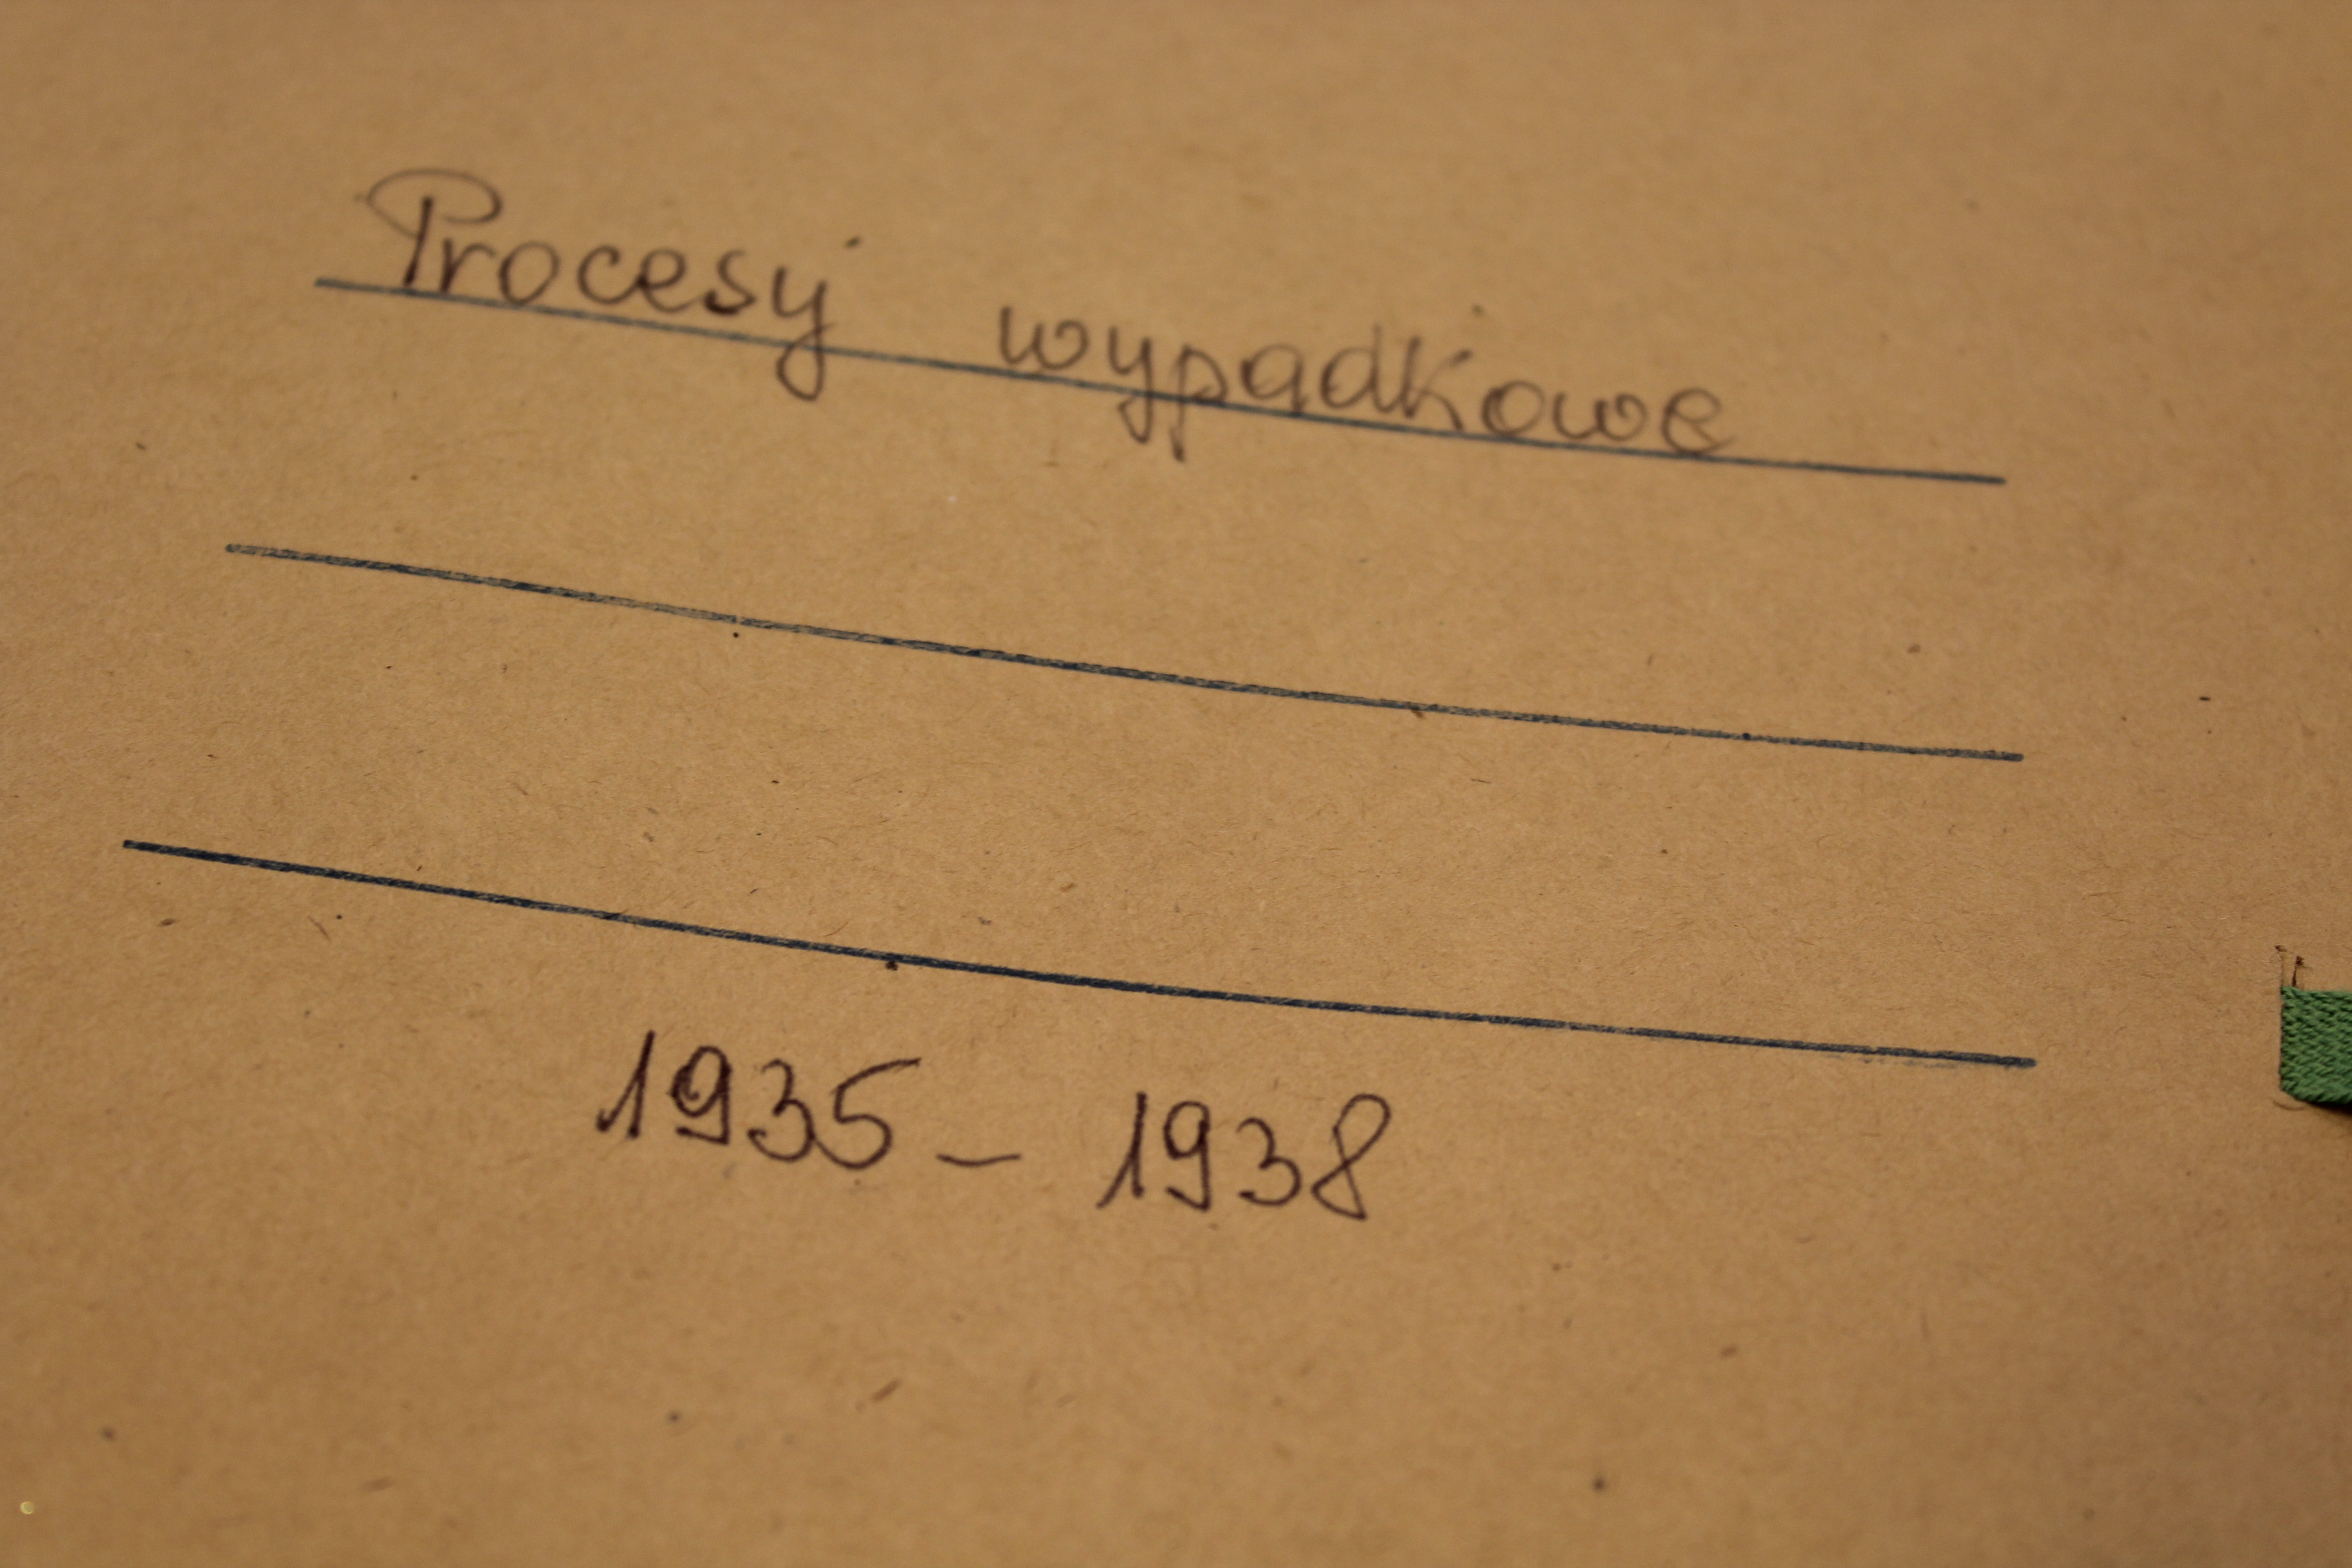 Procesy wypadkowe
1935 - 1938